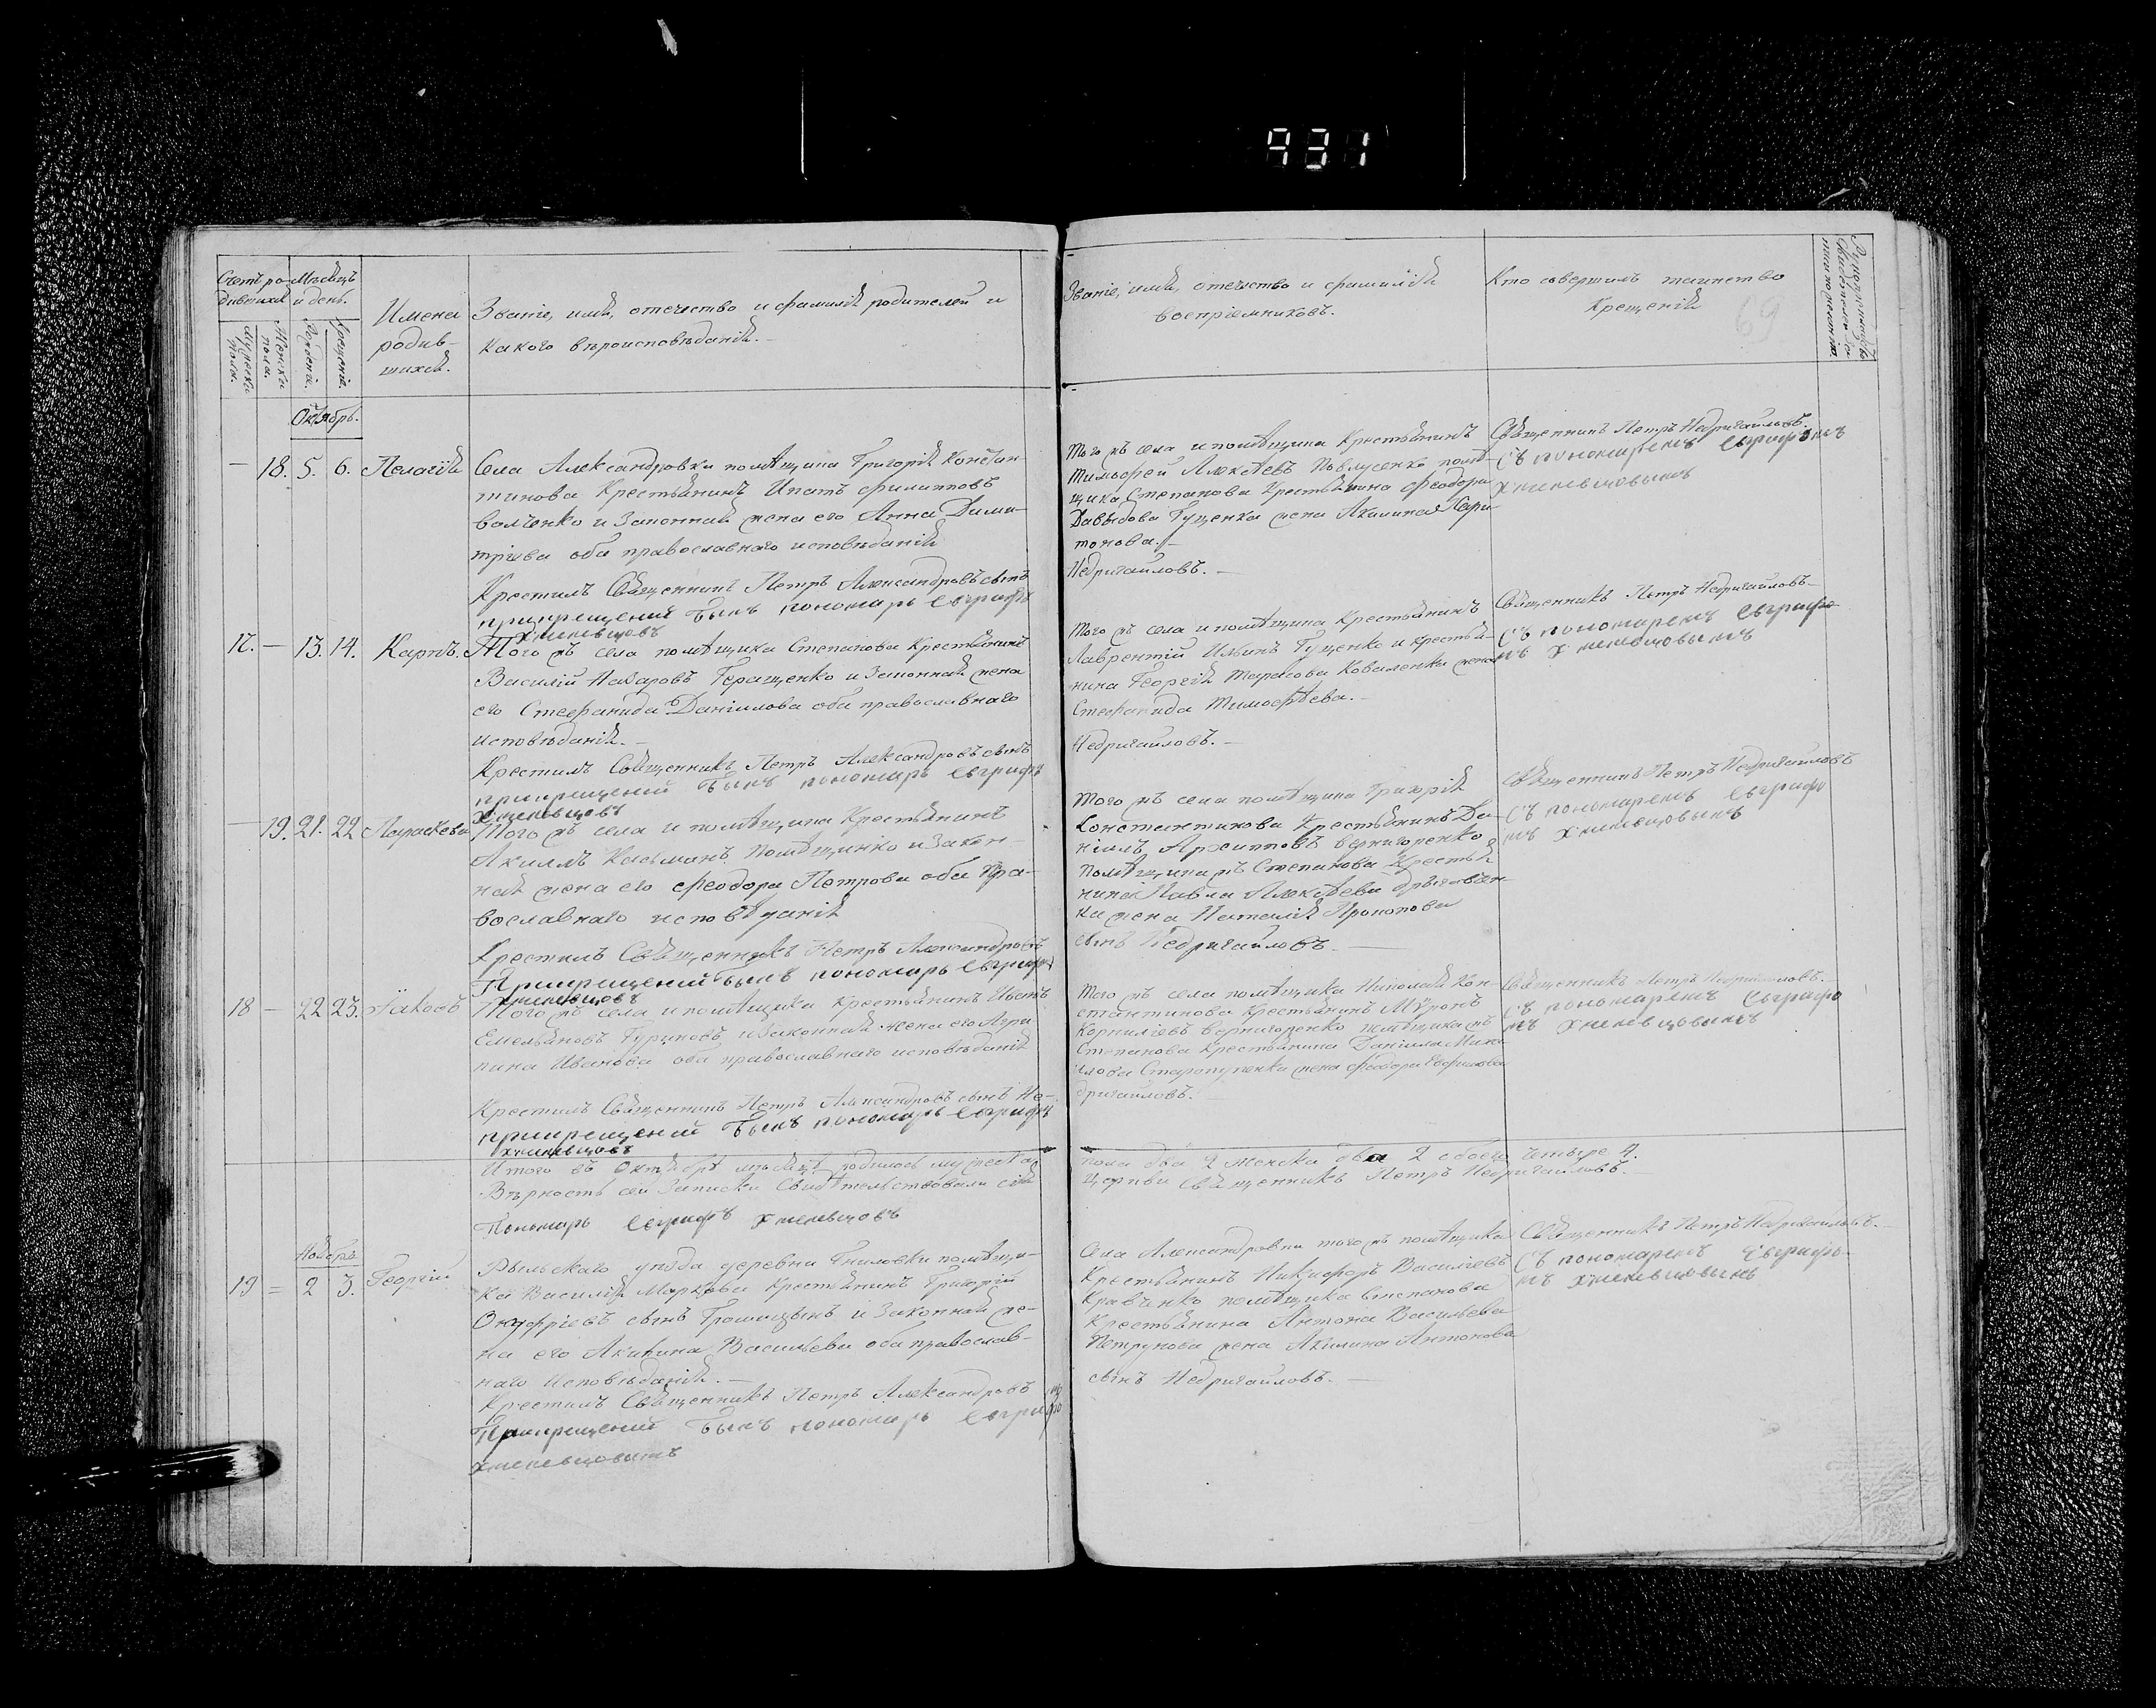 931
69
Счетъ ро-
дившихся
Мѣсяцъ
и день.
Мужеска
пола.
Женска
пола.
Рожденiя.
Крещенiя.
Имена
родив-
шихся.
Званiе, имя, отечество и фамилiя родителей и
какого вѣроисповѣданiя.
Званiе, имя, отечество и фамилiя
воспрiемниковъ.
Кто совершилъ таинство
Крещенiя
Октябрь.
— 18. 5. 6. Пелагiя
Села Александровки помѣщика Григорiя Констан-
тинова Крестьянинъ Ипатъ Филипповъ
Волченко и Законная жена его Анна Дими-
трiева оба православнаго исповѣданiя
Крестилъ Священникъ Петръ Александровъ сынъ
прикрещенiи былъ пономарь Евграфъ
Хмелевцовъ
Того жъ села и помѣщика Крестьянинъ
Тимофей Алексѣевъ Павлусенко помѣ-
щика Степанова Крестьянина Феодора
Давыдова Гущенка жена Акилина Хари-
тонова.
Недригайловъ.
Священникъ Петръ Недригайловъ.
съ пономаремъ Евграфомъ
Хмелевцовымъ
17. — 13. 14. Карпъ.
Того жъ села помѣщика Степанова Крестьянинъ
Василiй Назаровъ Геращенко и Законная жена
его Стефанида Данiилова оба православнаго
исповѣданiя.
Крестилъ Священникъ Петръ Александровъ сынъ
прикрещенiи былъ пономарь Евграфъ
Хмелевцовъ
Того жъ села и помѣщика Крестьянинъ
Лаврентiй Ильинъ Гущенко и крестья-
нина Георгiя Тарасова Коваленка жена
Стефанида Тимофѣева.
Недригайловъ.
Священникъ Петръ Недригайловъ
съ пономаремъ Евграфо
мъ Хмелевцовымъ
— 19. 21. 22 Параскева
Того жъ села и помѣщика Крестьянинъ
Акиллъ Касьманъ и Закон-
ная жена его Феодора Петрова оба пра-
вославнаго исповѣданiя
Крестилъ Священникъ Петръ Александровъ
Прикрещенiи былъ пономарь Евграфъ
Хмелевцовъ
Того жъ села помѣщика Григорiя
Константинова Крестьянинъ Да-
нiилъ Архиповъ Вернигоренко
помѣщика жъ Степанова Крестья
нина Павла Алексѣева
ка жена Наталiя Прокопова
сынъ Недригайловъ.
Священникъ Петръ Недригайловъ
съ пономаремъ Евграфо
мъ Хмелевцовымъ
18 — 22 23. Iаковъ
Того жъ села и помѣщика крестьянинъ Иванъ
Емельяновъ Гуриновъ и Законная жена его Агри
пина Иванова оба православнаго исповѣданiя
Крестилъ Священникъ Петръ Александровъ сынъ Не-
прикрещенiи былъ пономарь Евграфъ
Хмелевцовъ
Того жъ села помѣщика Николая Кон-
стантинова крестьянинъ Мѵронъ
Корнилiевъ Вернигоренко помѣщика жъ
Степанова Крестьянина Данiила Миха
илова жена Феодора
дригайловъ.
Священникъ Петръ Недригайловъ.
съ пономаремъ Евграфо
мъ Хмелевцовымъ
Итого въ Октябрѣ мѣсяцѣ родилось мужеска
пола два 2 женска два 2 обоего четыре 4.
Вѣрность сей Записки Свидѣтельствовали сей
Церкви Священникъ Петръ Недригайловъ.
Пономарь Евграфъ Хмелевцовъ
Ноябрь
19 = 2 3. Георгiй
Рыльскаго уѣзда деревни Гниловки помѣщи-
ка Василiя Маркова крестьянинъ Григорiй
Онуфрiевъ сынъ и Законная же-
на его Акилина Васильева оба православ-
наго Исповѣданiя.
Крестилъ Священникъ Петръ Александровъ
Прикрещенiи былъ пономарь Евграфо
Хмелевцовымъ
Села Александровки того жъ помѣщика
Крестьянинъ Никифоръ Василiевъ
Кравченко помѣщика Степанова
Крестьянина Антона Васильева
Петрунова жена Акилина Антонова
сынъ Недригайловъ.
Священникъ Петръ Недригайловъ.
съ пономаремъ Евграфо-
мъ Хмелевцовымъ